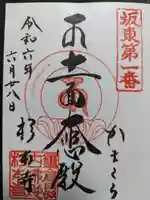 坂東第一番
かまくら
十一面大悲殿
杉本寺
令和六年
六月廿八日